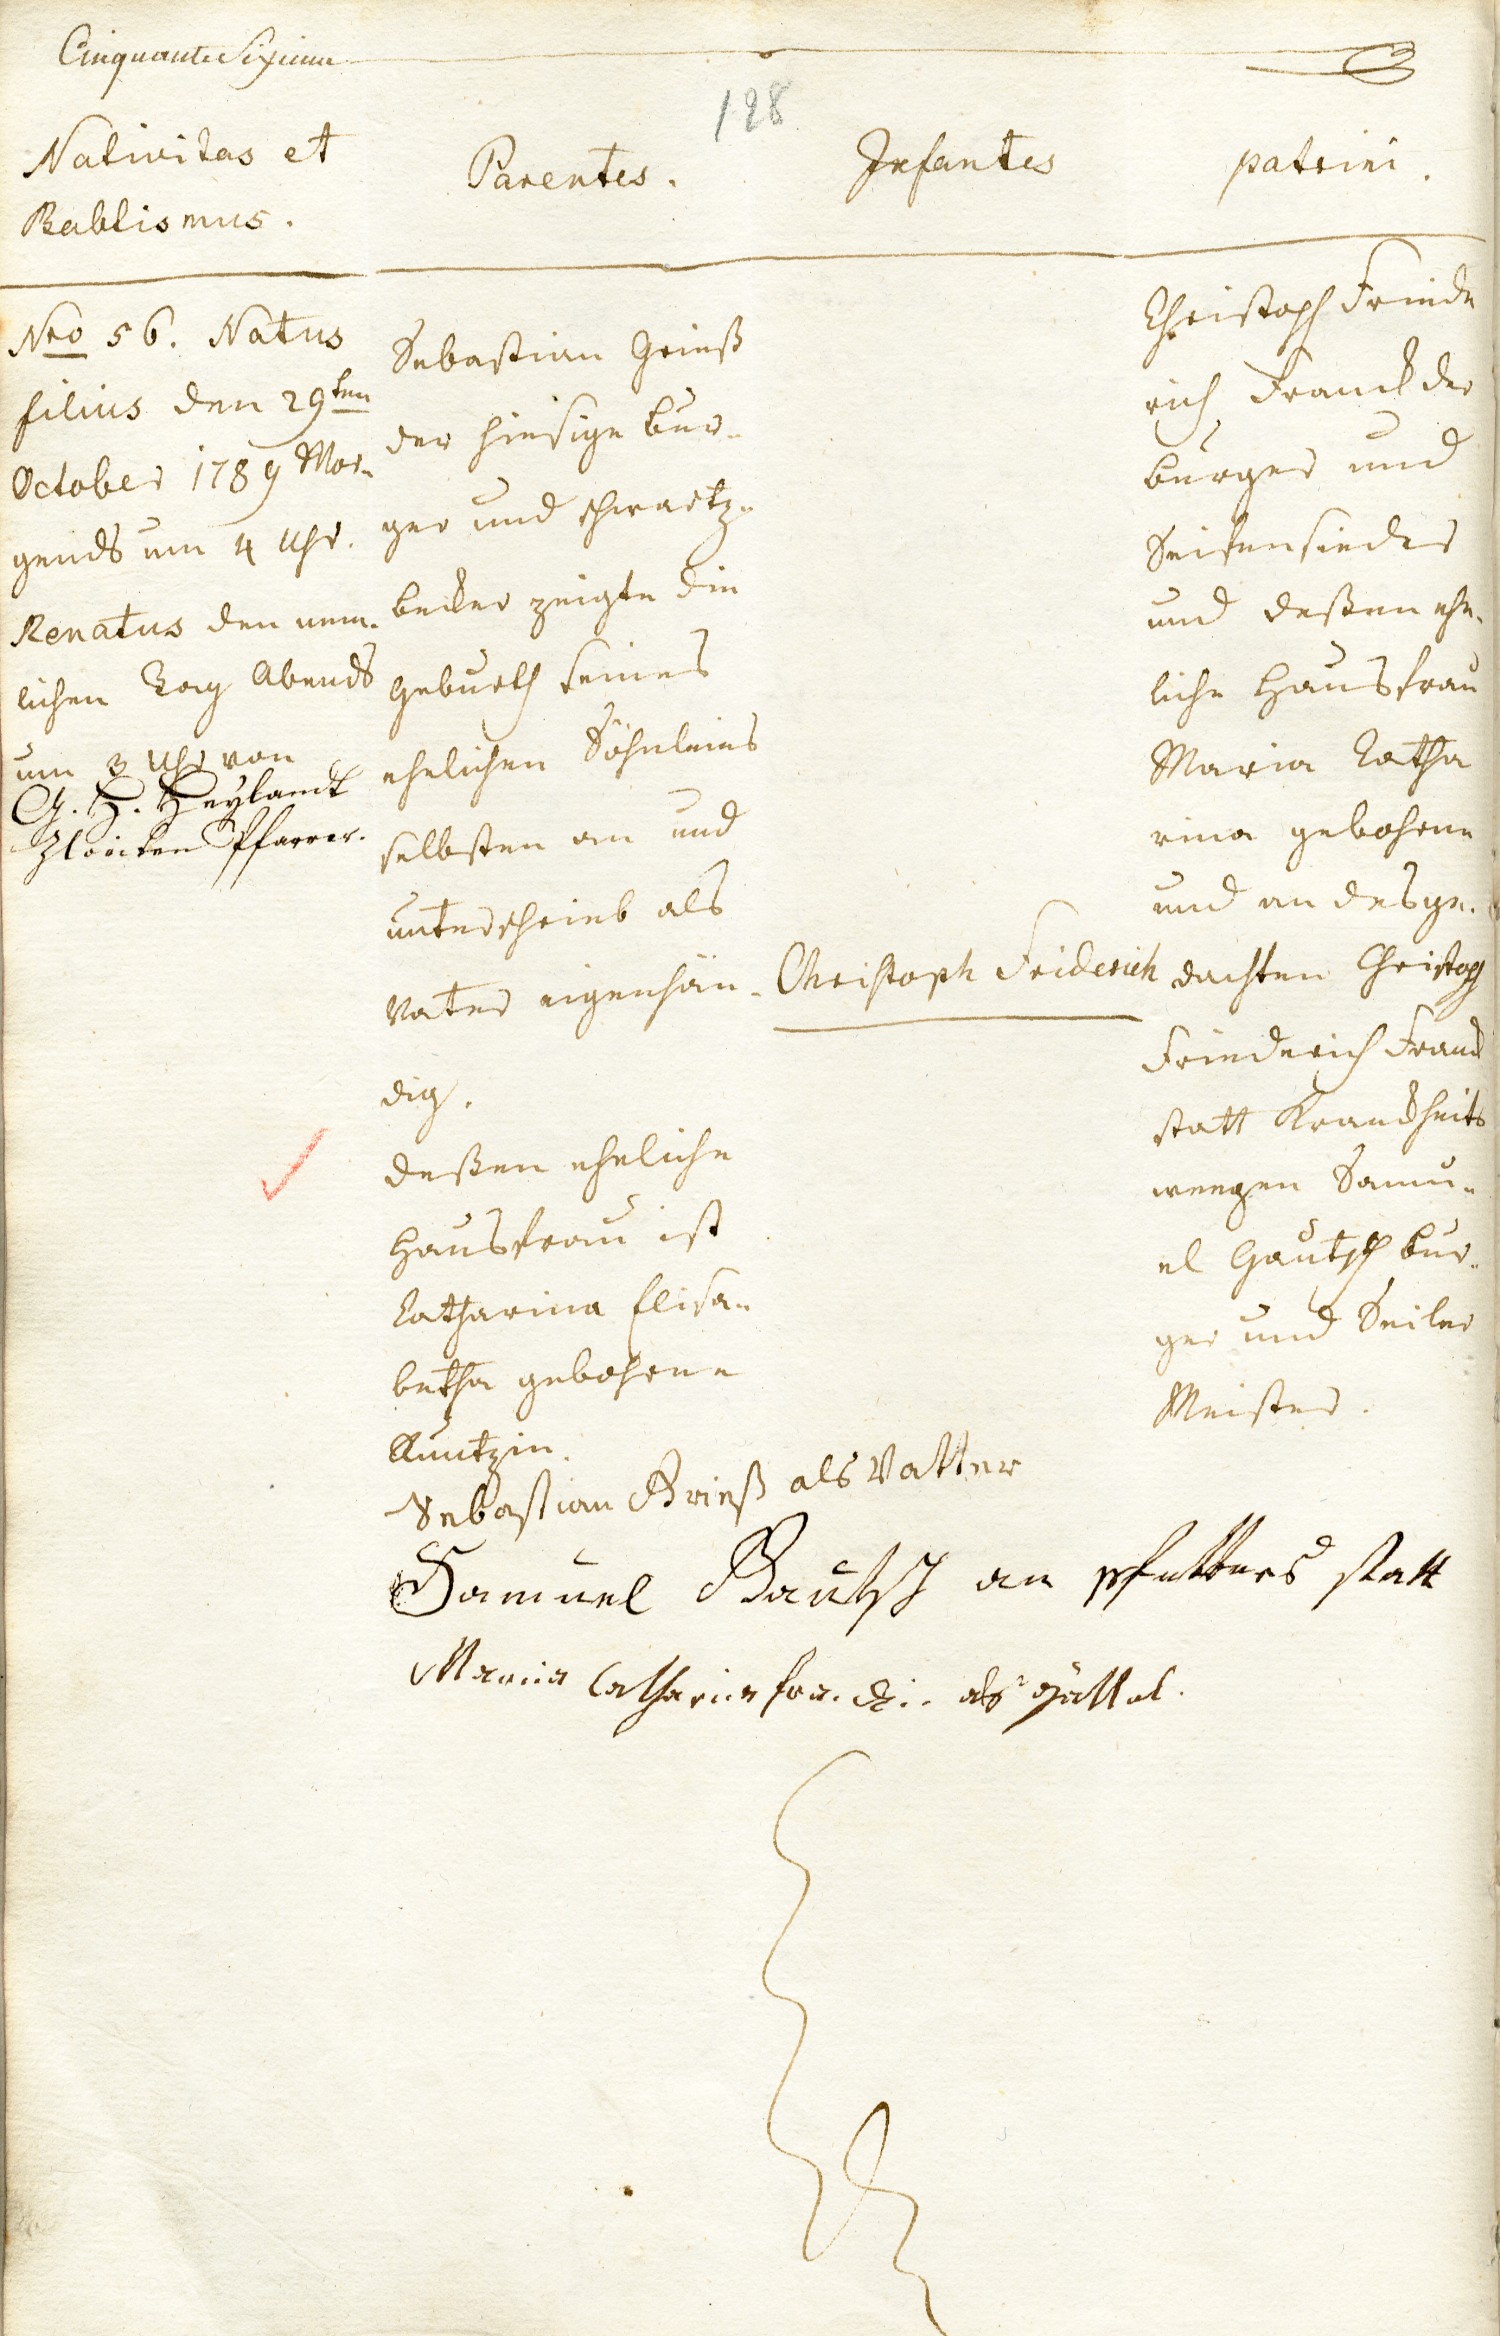 Cinquante Sixieme
128
Nativitas et
Babtismus.
Parentes.
Infantes
patrini.
Nro 56. Natus
filius den 29ten
October 1789 Mor-
gends um 4 Uhr.
Renatus den nem-
lichen Tag Abends
um 3 Uhr von
G. H. Heylandt
Pfarrer.
Sebastian Grieß
der hiesige bur-
ger und schwartz-
becker zeigte die
geburth seines
ehelichen Söhnleins
selbsten an und
unterschrieb als
Vater eigenhän-
dig.
deßen eheliche
Hausfrau ist
Catharina Elisa-
betha gebohrne
Kuntzin.
Christoph Friderich
Christoph Friede
rich Franck der
burger und
Seifensieder
und deßen ehe-
liche Hausfrau
Maria Catha
rina gebohrne
und an des ge-
dachten Christoph
Friederich Franck
statt Kranckheits
weegen Samu-
el Gautsch bur-
ger und Seiler
Meister.
Sebastian Grieß als Vatter
Samuel Gautsch an pfetters statt
Maria Catharina als göttel.